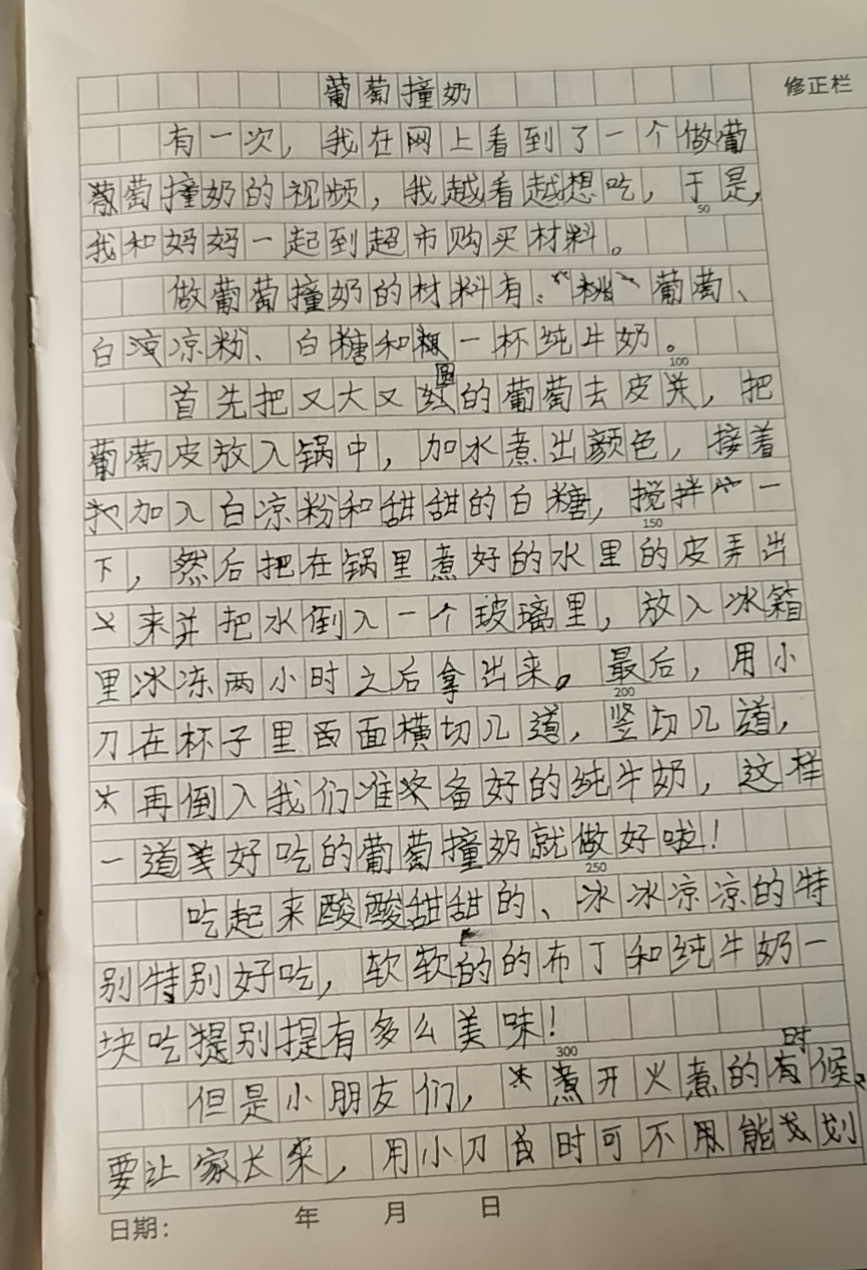 葡萄撞奶
修正栏
有一次，我在网上看到了一个做葡
萄撞奶的视频，我越看越想吃，于是，
50
我和妈妈一起到超市购买材料。
做葡萄撞奶的材料有：葡萄、
白凉粉、白糖和一杯纯牛奶。
100
首先把又大又圆的葡萄去皮，把
葡萄皮放入锅中，加水煮出颜色，接着
加入白凉粉和甜甜的白糖，搅拌一
150
下，然后把在锅里煮好的水里的皮弄出
来并把水倒入一个玻璃里，放入冰箱
里冰冻两小时之后拿出来。最后，用小
200
刀在杯子里面横切几道，竖切几道，
再倒入我们准备好的纯牛奶，这样
一道好吃的葡萄撞奶就做好啦！
250
吃起来酸酸甜甜的、冰冰凉凉的特
别特别好吃，软软的的布丁和纯牛奶一
块吃提别提有多么美味！
300
但是小朋友们，煮开火煮的时候，
要让家长来，用小刀时可不能划
日期： 年 月 日